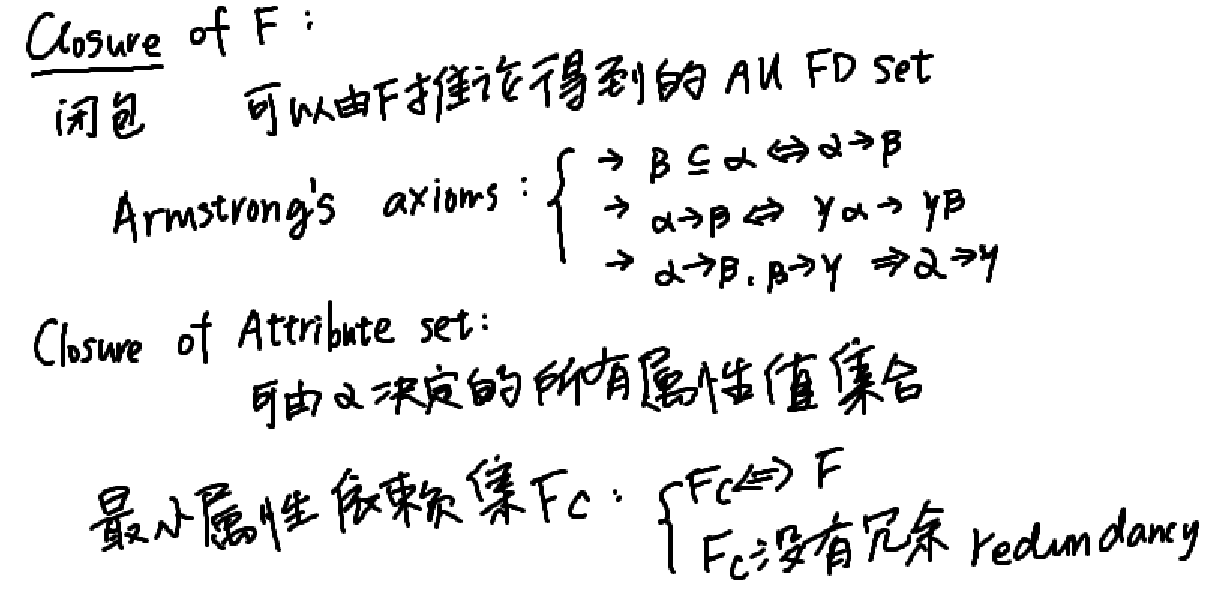 Closure of F :
闭包 可以由F推论得到的 All FD set
Armstrong's axioms : { → β ⊆ α ⇔ α→β
→ α→β ⇔ γα → γβ
→ α→β, β→γ ⇒ α→γ
Closure of Attribute set:
可由α决定的所有属性值集合
最小属性依赖集Fc : { Fc ⇔ F
Fc没有冗余 redundancy